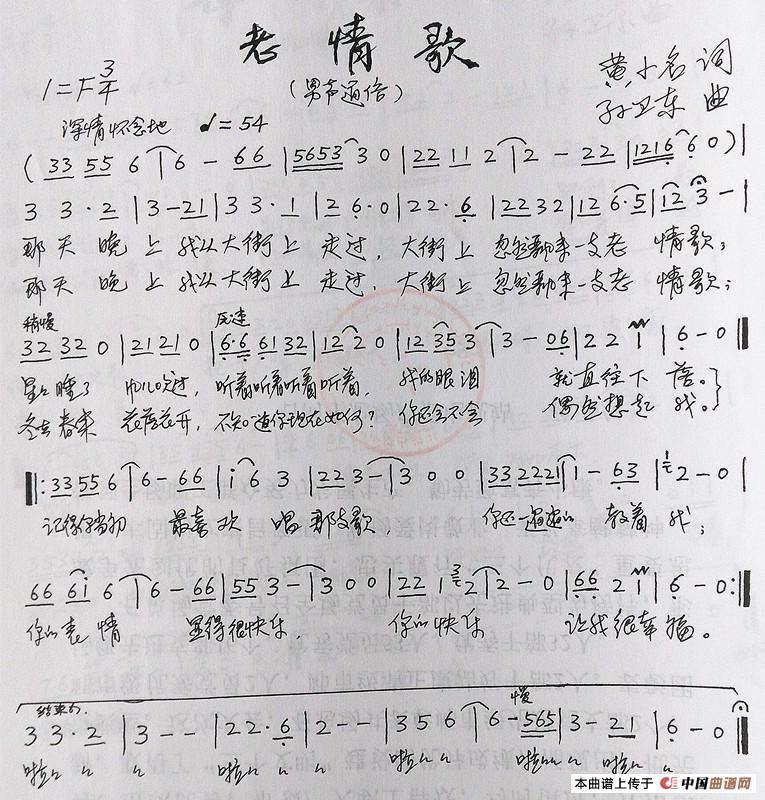 老情歌
(男声通俗)
1=F 3/4
黄小名 词
孙卫东 曲
深情怀念地 ♩=54
(33 55 6 | 6 - 66 | 5653 3 0 | 22 11 2 | 2 - 22 | 1216 6 0) |
3 3·2 | 3 -21 | 3 3·1 | 2 6·0 | 22·6 | 22 32 | 12 6·5 | 12 3 - |
那天晚上 我从大街上走过, 大街上 忽然飘来一支老情歌;
那天晚上 我从大街上走过, 大街上 忽然飘来一支老情歌;
稍慢 原速
32 32 0 | 21 21 0 | 6·6 61 32 | 12 2 0 | 12 35 3 | 3 - 06 | 2 2 1 | 6 - 0
星星睡了 听着听着听着听着, 我的眼泪 就直往下落。
冬去春来 花落花开, 不知道你现在如何? 你还会不会 偶然想起我。
‖: 33 55 6 | 6 - 66 | i 6 3 | 22 3 - | 3 0 0 | 33 222 1 | 1 - 63 | 2 - 0 |
记得你当初 最喜欢唱那支歌, 你还一遍遍的教着我;
66 6i 6 | 6 - 66 | 55 3 - | 3 0 0 | 22 1 2 | 2 - 0 | 66 2 1 | 6 - 0 :‖
你的表情 显得很快乐 你的快乐 让我很幸福。
结束句 慢
3 3·2 | 3 - - | 22·6 | 2 - - | 3 5 6 | 6 - 565 | 3 - 21 | 6 - 0
啦 啦 啦 啦 啦
本曲谱上传于 中国曲谱网